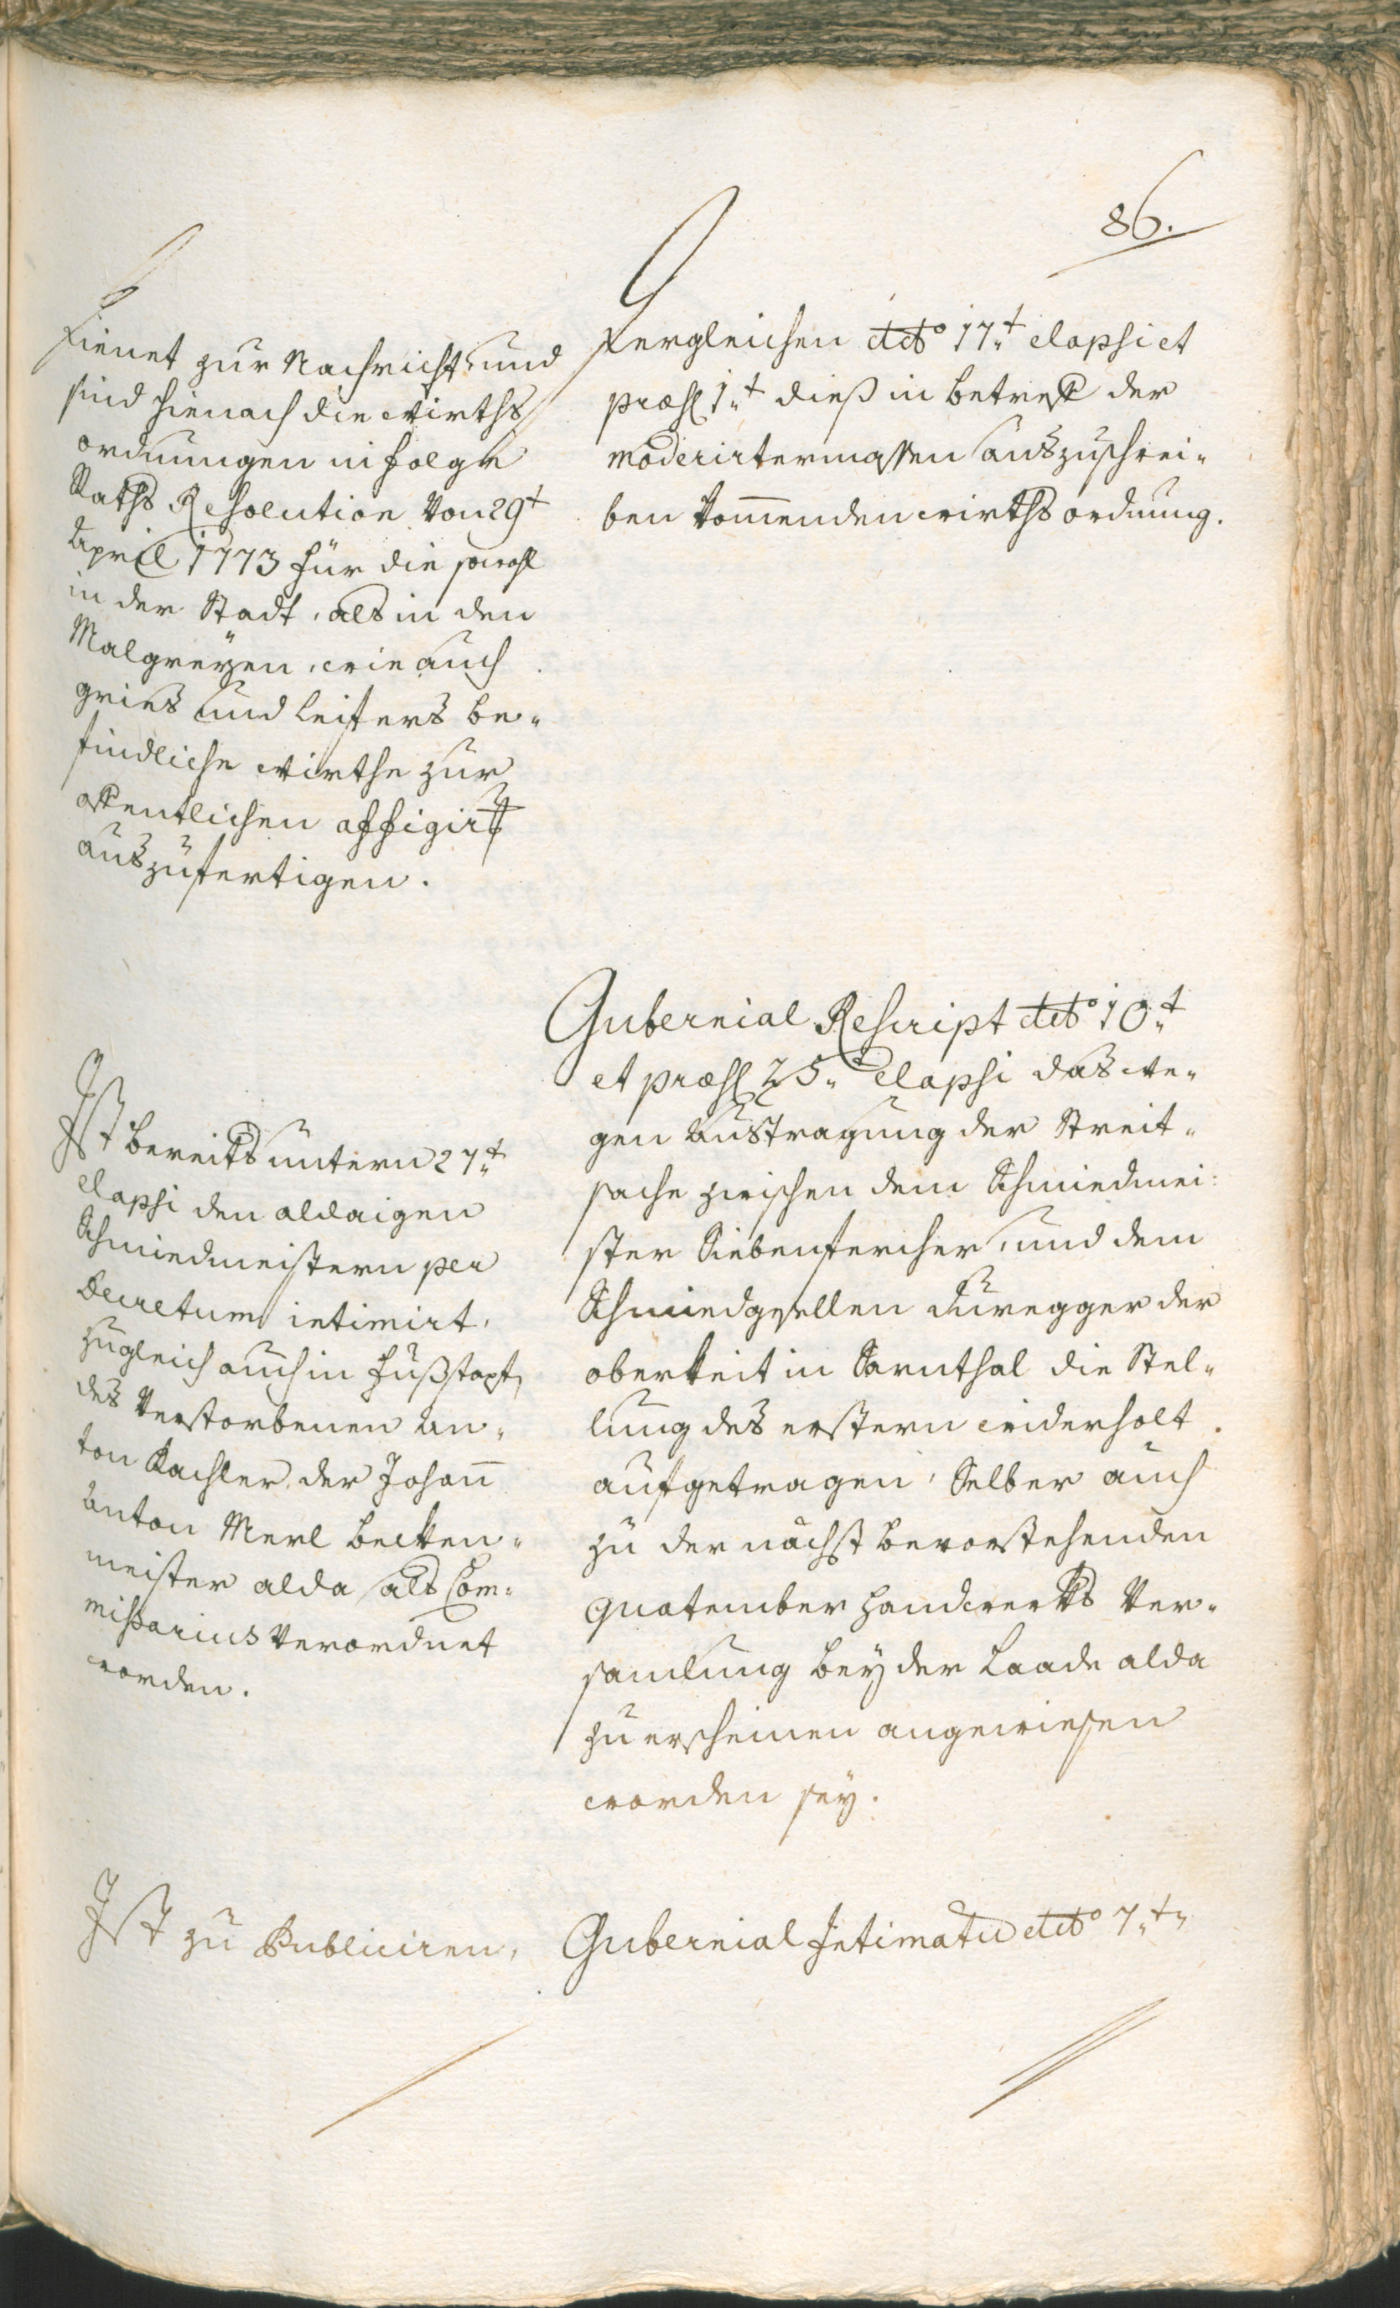 86.
Dienet zur Nachricht, und
sind hienach die wirths
ordnungen in folge
Raths Resolution von 29t
April 1773 für die sowohl
in der Stadt, als in den
Malgreyen, wie auch
gries und leifers be-
findliche wirthe zur
offentlichen affigir
auszufertigen.
Dergleichen ddto 17t elapsi et
præs 1t dieß in betreff der
moderirtermassen auszuschrei-
ben komenden wirths ordnung.
Ist bereits untern 27t
elapsi den aldaigen
Schmiedmeistern per
Decretum intimirt,
zugleich auch in fußstapf
des verstorbenen An-
ton Kachler, der Johann
Anton Merl becken-
meister alda als Com-
missarius verordnet
worden.
Gubernial Rescript ddto 10t
et præs 25t elapsi das we-
gen Austragung der Streit-
sache zwischen dem Schmiedmei-
ster Siebenfercher, und dem
Schmiedgsellen Duregger der
oberkeit in Sarnthal die Stel-
lung des erstern widerholt
aufgetragen, Selber auch
zu der nächst bevorstehenden
Quatember handwerks ver-
samlung bey der Laade alda
zu erscheinen angewiesen
worden sey.
Ist zu Publiciren,
Gubernial Intimatum ddto 7t